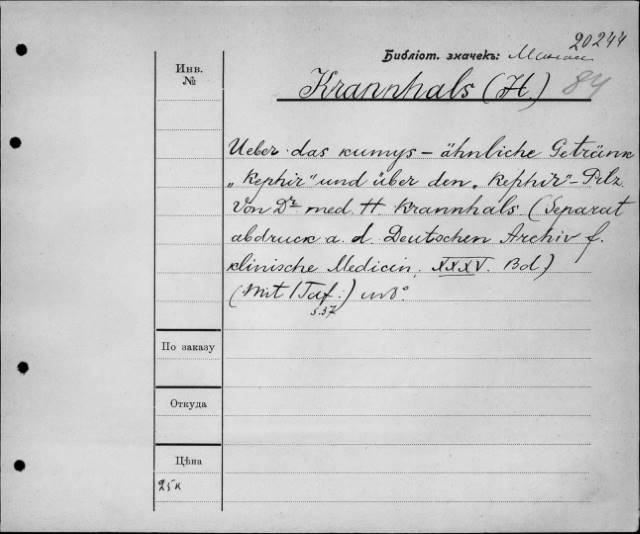 20244
Инв.
№
Библіот. значекъ:
Krannhals (H.) 84
Ueber das kumys-ähnliche Getränk
„Kephir" und über den „Kephir"-Pilz.
Von Dr med. H. Krannhals (Separat
abdruck a. d. Deutschen Archiv f.
klinische Medicin, XXXV. Bd.)
(Mit 1 Taf.)
S. 37
По заказу
Откуда
Цѣна
25к